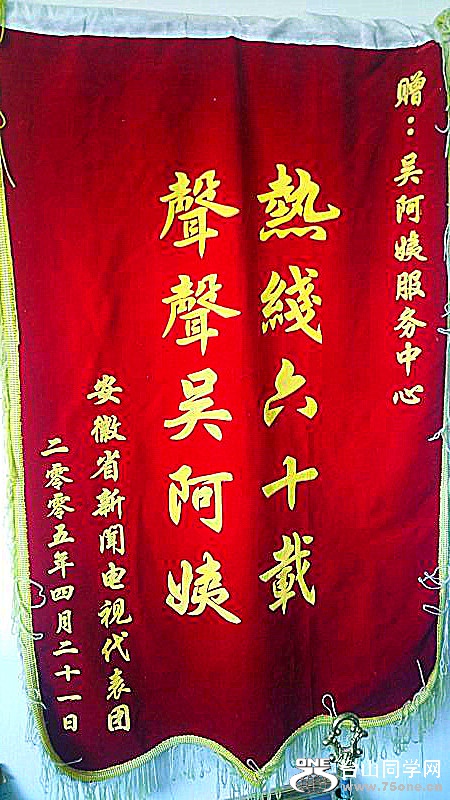 赠：吴阿姨服务中心
熱綫六十載
聲聲吴阿姨
安徽省新闻电视代表团
二零零五年四月二十一日
ONE
75
台山同学网
www.75one.cn